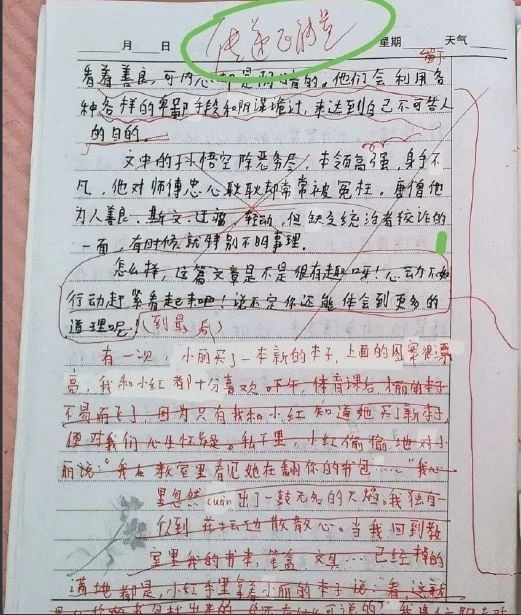 月 日 传递正能量 星期 天气
看着善良，可内心却是阴暗的。他们会利用各
种各样的卑鄙手段和阴谋诡计，来达到自己不可告人
的目的。
文中的孙悟空除恶务尽，本领高强，身手不
凡，他对师傅忠心耿耿却常常被冤枉。唐僧他
为人善良、斯文、但缺乏统治者狡诈的
一面，有时候就特别不明事理。
怎么样，这篇文章是不是很有趣呀！心动不如
行动赶紧看起来吧！说不定你还能体会到更多的
道理呢（到最后）
有一次，小丽买了一本新的本子，上面的图案很漂
亮，我和小红都十分喜欢。下午，体育课后小丽的本子
不易而飞了，因为只有我和小红知道她买了新本子
便对我们心生怀疑。私下里，小红偷偷地对小
丽说：“我在教室里看见她在翻你的书包……”我心
里忽然cuan出了一鼓无名的火焰，我独自
走到 散散心。当我回到教
室里我的书本，笔盒，文具……已经掉的
满地都是，小红手里拿着小丽的本子说：看，这就